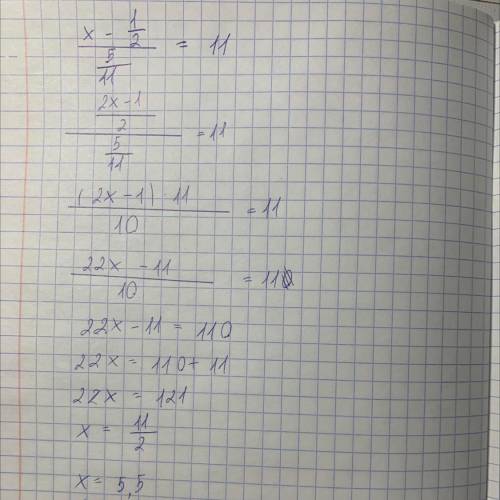 x - 1/2 / 5/11 = 11
2x-1/2 / 5/11 = 11
(2x-1) 11 / 10 = 11
22x - 11 / 10 = 11
22x - 11 = 110
22x = 110 + 11
22x = 121
x = 11/2
x = 5,5